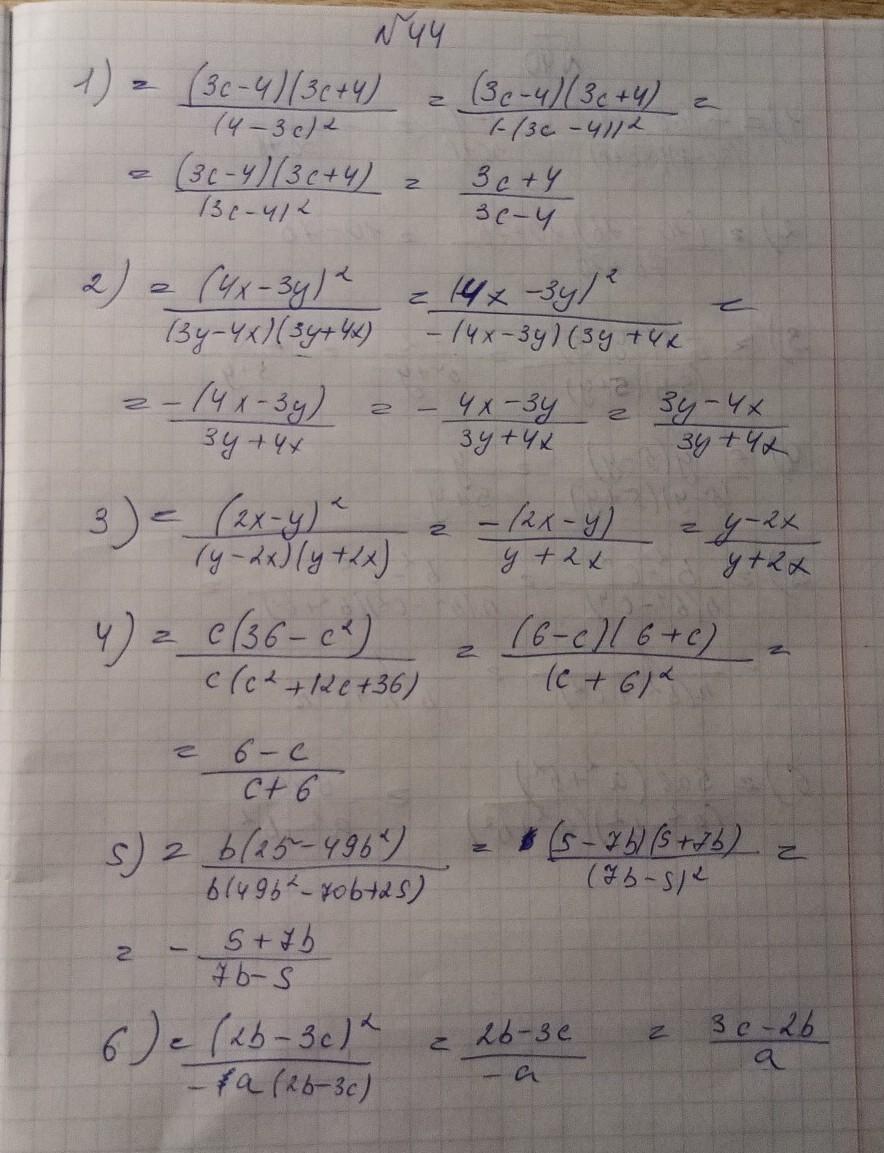 №44
1) = (3c-4)(3c+4)/(4-3c)² = (3c-4)(3c+4)/(-(3c-4))² =
= (3c-4)(3c+4)/(3c-4)² = 3c+4/3c-4
2) = (4x-3y)²/(3y-4x)(3y+4x) = (4x-3y)²/-(4x-3y)(3y+4x =
= -(4x-3y)/3y+4x = - 4x-3y/3y+4x = 3y-4x/3y+4x
3) = (2x-y)²/(y-2x)(y+2x) = -(2x-y)/y+2x = y-2x/y+2x
4) = c(36-c²)/c(c²+12c+36) = (6-c)(6+c)/(c+6)² =
= 6-c/c+6
5) = b(25-49b²)/b(49b²-70b+25) = (5-7b)(5+7b)/(7b-5)² =
= - 5+7b/7b-5
6) = (2b-3c)²/-a(2b-3c) = 2b-3c/-a = 3c-2b/a